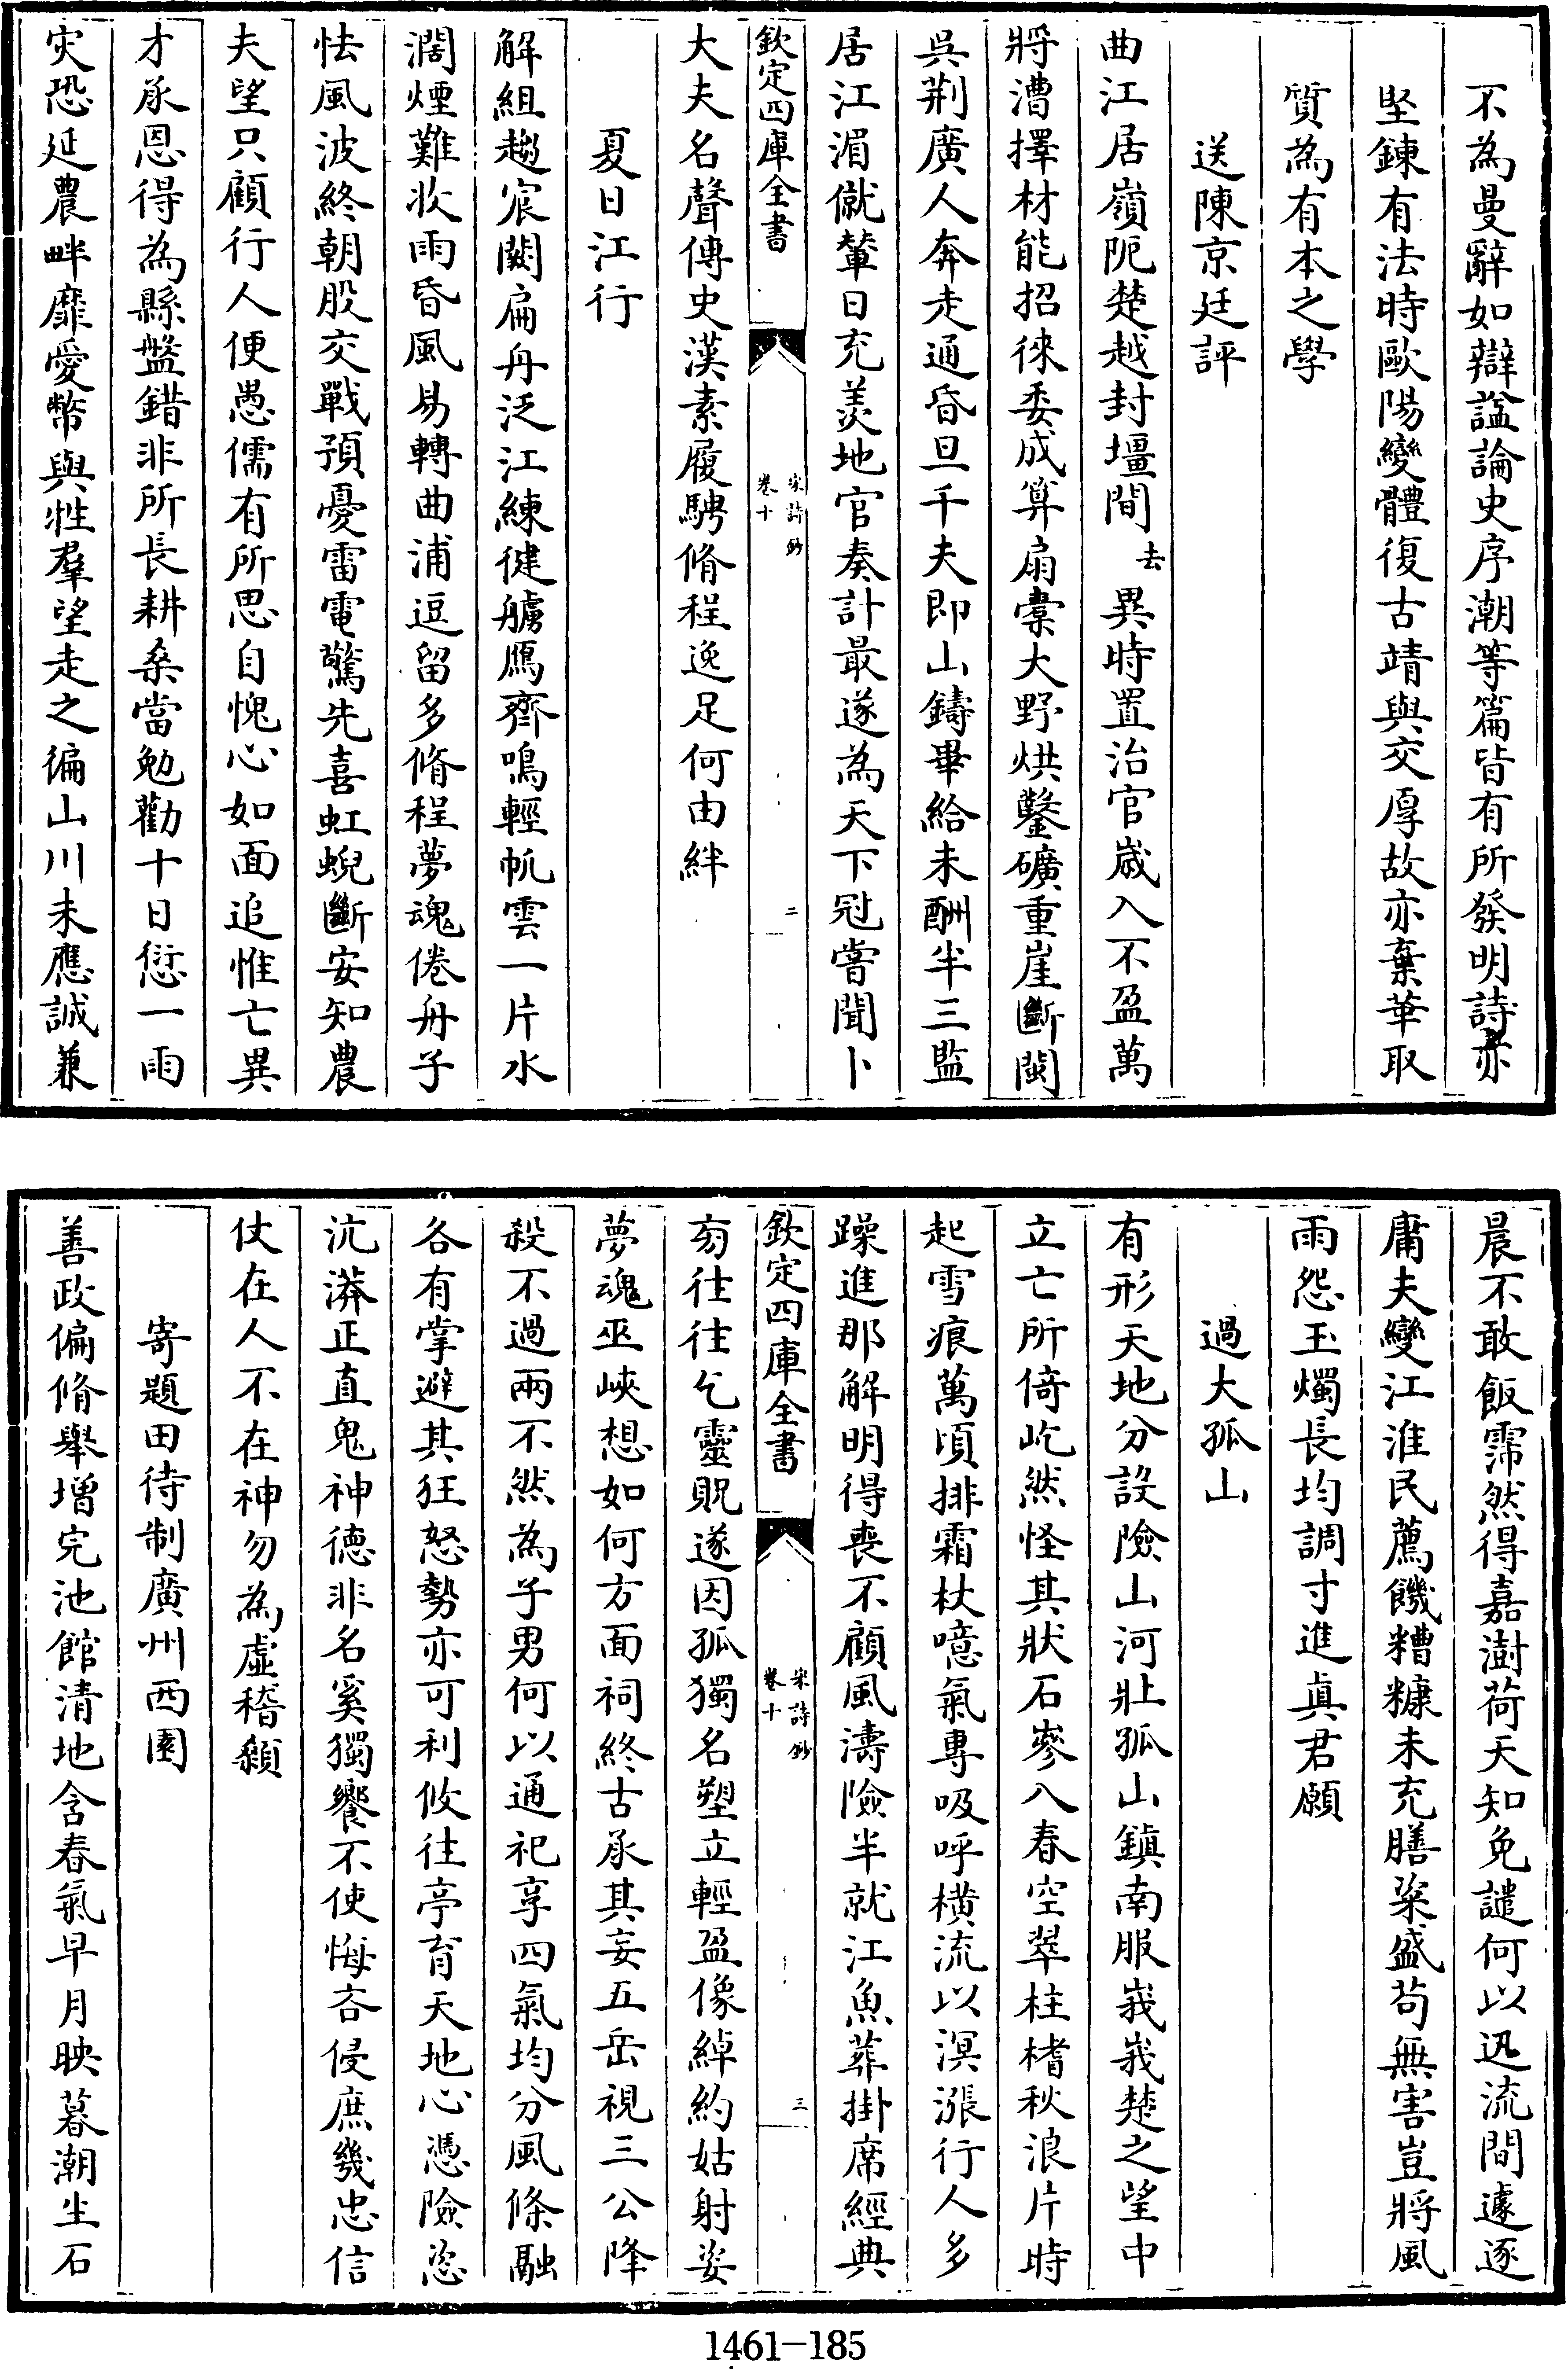 不為曼辭如辯諡論史序潮等篇皆有所發明詩亦
堅鍊有法時歐陽變體復古靖與交厚故亦棄華取
質為有本之學
送陳京廷評
曲江居嶺阨楚越封壃間去異時置治官嵗入不盈萬
將漕擇材能招徠委成算扇橐大野烘鑿礦重崖斷閩
吳荆廣人奔走通昏旦千夫即山鑄畢給未酬半三監
居江湄僦輦日充羡地官奏計最遂為天下冠嘗聞卜
欽定四庫全書
宋詩鈔
卷十
二
大夫名聲傳史漢素履騁脩程逸足何由絆
夏日江行
解組趨宸闕扁舟泛江練健艣鴈齊鳴輕帆雲一片水
濶煙難收雨昏風易轉曲浦逗留多脩程夢魂倦舟子
怯風波終朝股交戰預憂雷電驚先喜虹蜺斷安知農
夫望只顧行人便愚儒有所思自愧心如面追惟亡異
才承恩得為縣盤錯非所長耕桑當勉勸十日愆一雨
灾恐延農畔靡愛幣與牲羣望走之徧山川未應誠兼
晨不敢飯霈然得嘉澍荷天知免譴何以迅流間遽逐
庸夫變江淮民薦饑糟糠未充膳粢盛苟無害豈將風
雨怨玉燭長均調寸進真君願
過大孤山
有形天地分設險山河壯孤山鎮南服峩峩楚之望中
立亡所倚屹然怪其狀石㟥八春空翠柱楮秋浪片時
起雪痕萬頃排霜杖噫氣專吸呼横流以溟漲行人多
躁進那解明得喪不顧風濤險半就江魚葬掛席經典
欽定四庫全書
宋詩鈔
卷十
三
㓛往往乞靈貺遂因孤獨名塑立輕盈像綽約姑射姿
夢魂巫峽想如何方面祠終古承其妄五岳視三公降
殺不過兩不然為子男何以通祀享四氣均分風條融
各有掌避其狂怒勢亦可利攸往亭育天地心憑險恣
沆漭正直鬼神德非名奚獨饗不使悔吝侵庶幾忠信
仗在人不在神勿為虛稽顙
寄題田待制廣州西園
善政偏脩舉增完池館清地含春氣早月映暮潮生石
1461-185